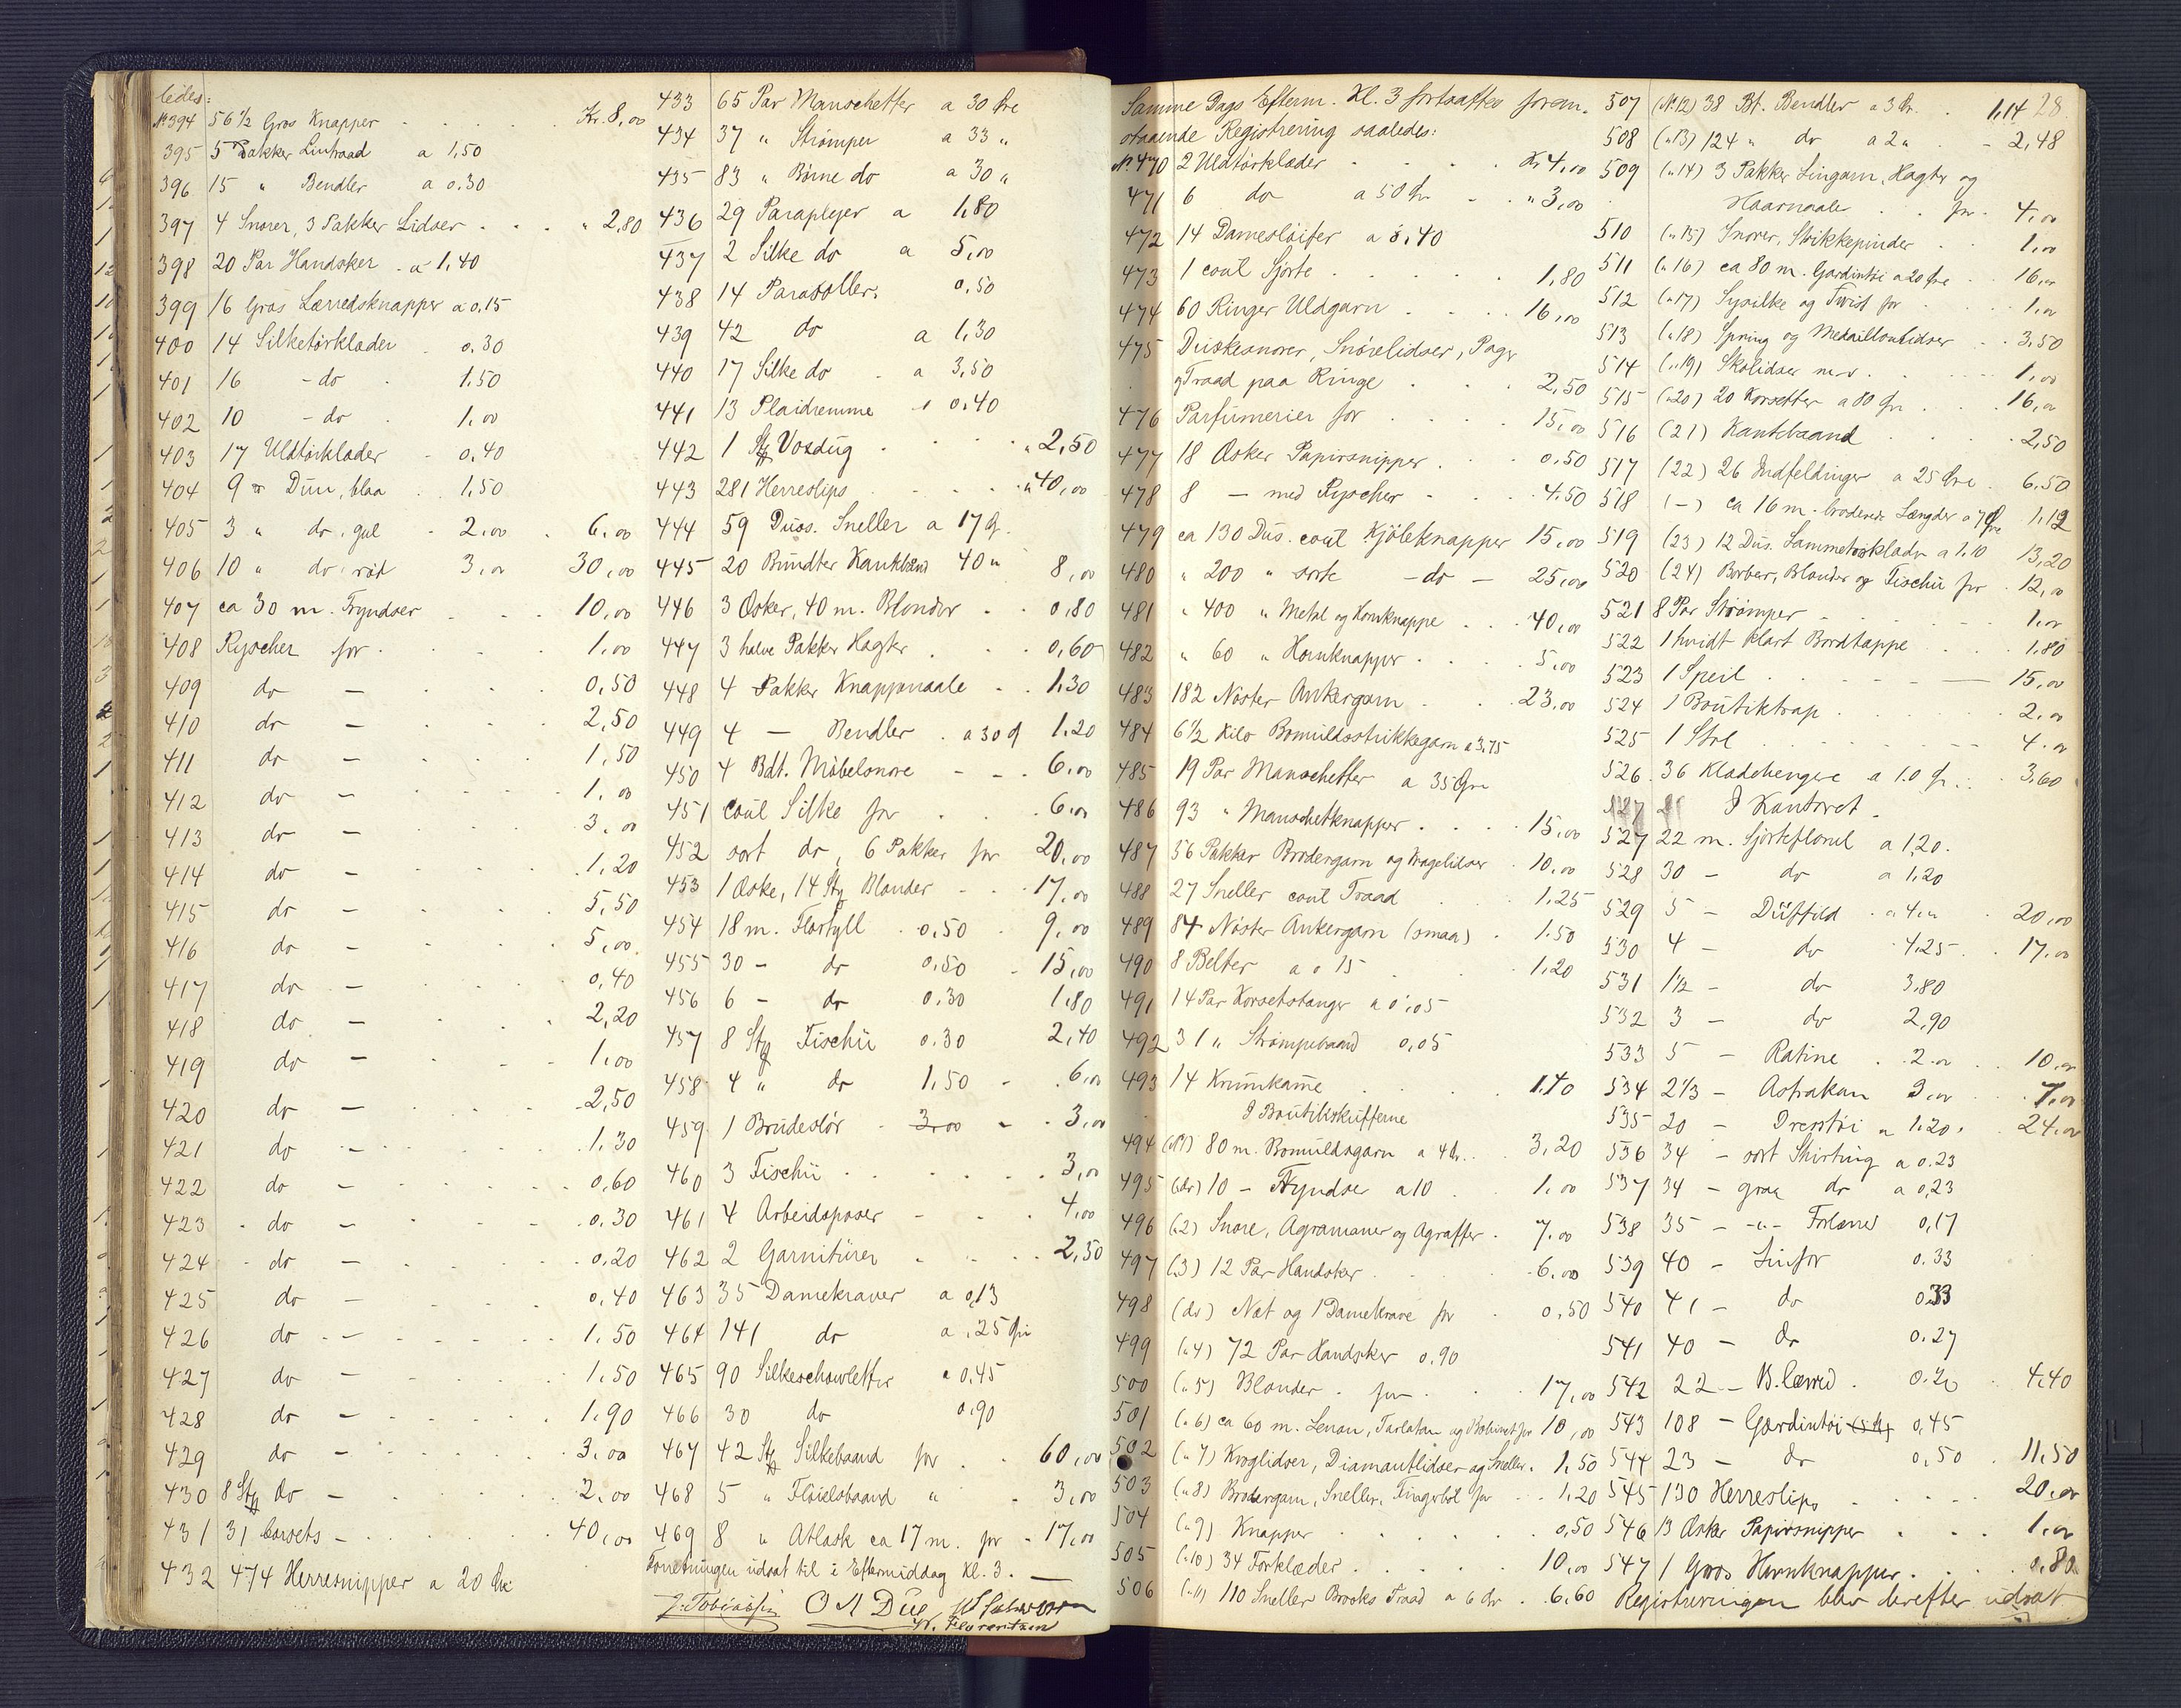 ledes:
No 394 56 1/2 Gros Knapper . . . . . Kr. 8,00
395 5 Pakker Lintraad a 1,50
396 15 " Bendler a 0.30
397 4 Snorer, 3 Pakker Lidser . . . " 2,80
398 20 Par Handsker . a 1,40
399 16 Gros Lærredsknapper a 0,15
400 14 Silketørklæder . 0.30
401 16 - do . 1.50
402 10 - do . 1.00
403 17 Uldtørklæder . 0.40
404 9 Dun, blaa . . 1,50
405 3 " do, gul . 2.00 . 6,00
406 10 " do rød 3,00 30,00
407 ca 30 m. Fryndser . . . 10,00
408 Ryscher for . . . . 1.00
409 do — . . . 0,50
410 do — . . . 2,50
411 do — . . . 1,50
412 do — . . . 1.00
413 do — . . . 3.00
414 do — . . . 1,20
415 do — . . . 5,50
416 do — . . . 5,00
417 do — . . . 0,40
418 do — . . . 2,20
419 do — . . . 1.00
420 do — . . . 2,50
421 do — . . . 1.30
422 do — . . . 0,60
423 do — . . . 0.30
424 do — . . . 0.20
425 do — . . . 0.40
426 do — . . . 1.50
427 do — . . . 1.50
428 do — . . . 1.90
429 do — . . . 3.00
430 8 Stk do — . . . 2.00
431 31 Corsets — . . . 40,00
432 474 Herresnipper a 20 Øre
433 65 Par Manschetter a 30 Øre
434 37 " Strømper a 33 "
435 83 " Børne do a 30 "
436 29 Paraplyer a 1,80
437 2 Silke do a 5,00
438 14 Parasoller. 0,50
439 42 do a 1,30
440 17 Silke do . a 3,50
441 13 Plaidremme a 0.40
442 1 Stk Voxdug . . . . " 2,50
443 281 Herreslips . . . . " 40,00
444 59 Dus. Sneller a 17 Ø.
445 20 Bundter Kantbånd 40 " 8,00
446 3 Æsker, 40 m. Blonder . . 0,80
447 3 halve Pakker Hagter . . 0,60
448 4 Pakker Knappenaale . . 1.30
449 4 — Bendler . a 30 Ø 1.20
450 4 Bdt. Møbelsnore — . 6.00
451 coul Silke for . . . 6.00
452 sort do, 6 Pakker for 20,00
453 1 Æske, 14 Stk Blonder . . 17.00
454 18 m. Flortyll . 0.50 . 9.00
455 30 - do 0.50 . 15,00
456 6 - do 0.30 1.80
457 8 Stk Fischü 0.30 2,40
458 4 " do 1,50 - . 6,00
459 1 Brudeslör . 3.00 - . 3,00
460 3 Fischü . . . . . 3,00
461 4 Arbeidsposer - . . 4,00
462 2 Garnitürer . . . 2,50
463 35 Damekraver a 0,13
464 141 do a .25 Øre
465 90 Silkeschawletter a 0.45
466 30 do 0,90
467 42 Stk Silkebaand for . . 60,00
468 5 " Fløielsbaand " . 3,00
469 8 " Atlask ca 17 m. for . 17,00
Forretningen udsat til i Eftermiddag Kl. 3. —
J. Tobiassen O M Due
Samme Dags Efterm. Kl. 3 fortsattes foran-
staaende Registrering saaledes:
No 470 2 Uldtørklæder . . . . Kr 4,00
471 6 do a 50 Øre . . " 3,00
472 14 Damesløifer a 0,40
473 1 coul Sjorte . . . . . 1,80
474 60 Ringer Uldgarn . . . . 16,00
475 Duskesnorer, Snørelidser, Pager
og Traad paa Ringe . . . 2,50
476 Parfumerier for . . . . 15,00
477 18 Æsker Papirsnipper . . . 0,50
478 8 — med Ryscher . . . 4,50
479 ca 130 Dus. coul Kjoleknapper 15,00
480 " 200 " sorte - do - 25,00
481 " 400 " Metal og Hornknappe . . . 40,00
482 " 60 " Hornknapper . . . . 5,00
483 182 Nøster Ankergarn . . . 23.00
484 6 1/2 Kilo Bomuldsstrikkegarn a 3,75
485 19 Par Manschetter a 35 Øre
486 93 " Manschetknapper . . . . 15,00
487 56 Pakker Brodergarn og Kragelidser . 10.00
488 27 Sneller coul Traad . . 1.25
489 84 Nöster Ankergarn (smaa) . 1.50
490 8 Belter a 0 15 . . . 1.20
491 14 Par Korsetstanger a 0,05
492 31 " Strømpebaand 0,05
493 14 Krumkamme . . . 1.40
I Boutikskufferne
494 (No 1) 80 m. Bomuldsgarn a 4 Ør. . 3,20
495 (do) 10 - Fryndser a 10 . 1.00
496 (" 2) Snore, Agramaner og Agraffer . 7.00
497 (" 3) 12 Par Handsker . . . . 6.00
498 (do) Net og 1 Damekrave for . 0,50
499 (" 4) 72 Par Handsker 0.90
500 (" 5) Blonder . for . . . 17,00
501 (" 6) ca 60 m. Lenon, Tarlatan og Bobinet for 10,00
502 (" 7) Kroglidser, Diamantlidser og Sneller . 1,50
503 (" 8) Brodergarn, Sneller, Fingerbøl for . . 1,20
504 (" 9) Knapper . . . . . 0,50
505 (" 10) 34 Forklæder . . . . 10,00
506 (" 11) 110 Sneller Brooks Traad a 6 Ør . . 6.60
507 (No 12) 38 Bt. Bendler a 3 Ør . . 1,14 28
508 (" 13) 124 " do a 2 " . - 2,48
509 (" 14) 3 Pakker Lingarn, Hagter og
Haarnaale . . for . 4,00
510 (" 15) Snorer, Strikkepinder . . 1,00
511 (" 16) ca 80 m. Gardintöi a 20 Øre . . 16,00
512 (" 17) Sysilke og Twist for . . . 1,00
513 (" 18) Spring og Medaillonlidser . . 3,50
514 (" 19) Skolidser m.v. . . . . 1,00
515 (" 20) 20 Korsetter a 80 Øre . . . 16,00
516 (21) Kantebaand . . . . 2,50
517 (22) 26 Indfeldinger a 25 Øre . 6,50
518 (—) ca 16 m. broderede Længder a 7 Øre 1,12
519 (23) 12 Dus. Lammetørklæder a 1.10 13,20
520 (24) Barber, Blonder og Fischü for . 12,00
521 8 Par Strømper . . . . . 1.00
522 1 hvidt klart Bordtæppe . . . . 1.80
523 1 Speil . . . . . — 15,00
524 1 Boutiktrap . . . . . 2.00
525 1 Stol . . . . . 4.00
526 36 Klædehengere a 10 Ør . . 3,60
I Kontoret.
527 22 m. Sjorteflonel a 1,20.
528 30 - do a 1,20
529 5 - Düffild . a 4,00 . 20,00
530 4 - do . 4.25 . . 17.00
531 1 1/2 - do 3,80
532 3 - do 2,90
533 5 - Ratine . . 2.00 . . 10,00
534 2 1/3 - Astrakan 3,00 . . 7,00
535 20 - Dresstöi a 1.20. . 24.00
536 34 - sort Shirting a 0.23
537 34 - graa do a 0,23
538 35 - -"- Forlærred 0,17
539 40 - Linfor 0.33
540 41 - do 0.33
541 40 - do 0.27
542 22 - B. lærred . 0.20 . 4,40
543 108 - Gardintøi 0,45
544 23 - do 0,50 . 11,50
545 130 Herreslips . . . . 20,00
546 13 Æsker Papirsnipper . . . 1.00
547 1 Gros Hornknapper . . . 0,80
Registreringen blev derefter udsat